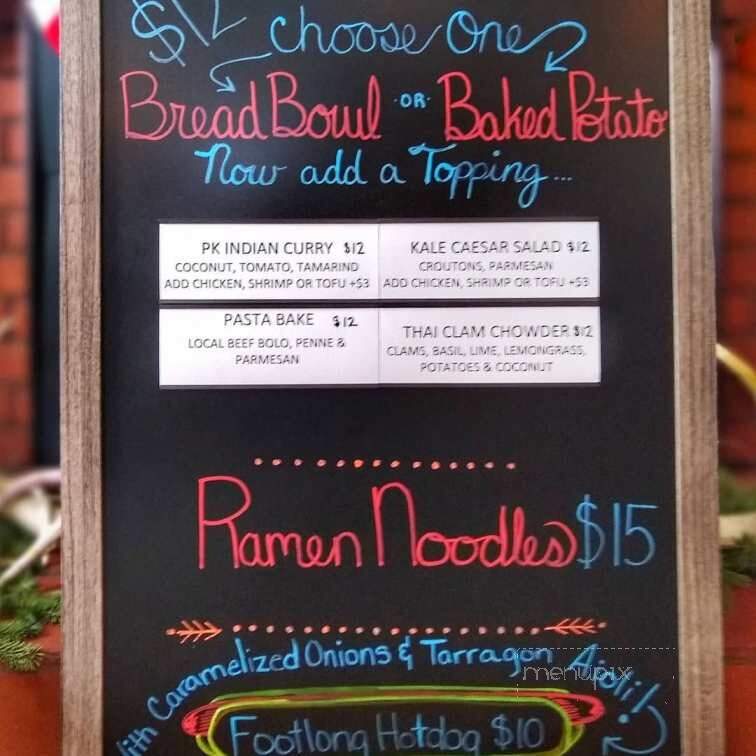 $12 choose One
Bread Bowl ·OR· Baked Potato
Now add a Topping...
PK INDIAN CURRY $12
COCONUT, TOMATO, TAMARIND
ADD CHICKEN, SHRIMP OR TOFU +$3
KALE CAESAR SALAD $12
CROUTONS, PARMESAN
ADD CHICKEN, SHRIMP OR TOFU +$3
PASTA BAKE $12
LOCAL BEEF BOLO, PENNE &
PARMESAN
THAI CLAM CHOWDER $12
CLAMS, BASIL, LIME, LEMONGRASS,
POTATOES & COCONUT
Ramen Noodles $15
With Caramelized Onions & Tarragon Aioli!
menupix
Footlong Hotdog $10